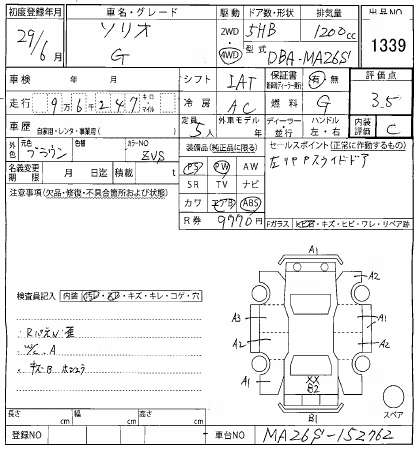 初度登録年月 車名・グレード 駆動 ドア数・形状 排気量 出品NO
29/6月 ソリオ G 2WD 4WD 5HB 1200cc 1339
型式 DBA-MA26S
車検 年 月 シフト IAT 保証書 有 無 評価点
走行 9万6千247キロ マイル 冷房 AC 燃料 G 3.5
車歴 自家用・レンタ・事業用( ) 定員 5人 外車モデル 年 ディーラー 並行 ハンドル 左・右 内装評価 C
外色 元色 ブラウン 色替 カラーNO ZVS 装備品(純正品に限る) セールスポイント(正常に作動するもの)
名義変更期限 月 日迄 積載 t PS PW AW 左リヤPスライドドア
注意事項(欠品・修復・不具合箇所および状態) SR TV ナビ
カワ エアB ABS
R券 9770円 Fガラス キズ・ヒビ・ワレ・リペア跡
A1
A2
検査員記入 内装 キズ・キレ・コゲ・穴
A3 A1
A2 A2
A1
XX
B2
B1
スペア
長さ cm 幅 cm 高さ cm
登録NO 車台NO MA26S-152762